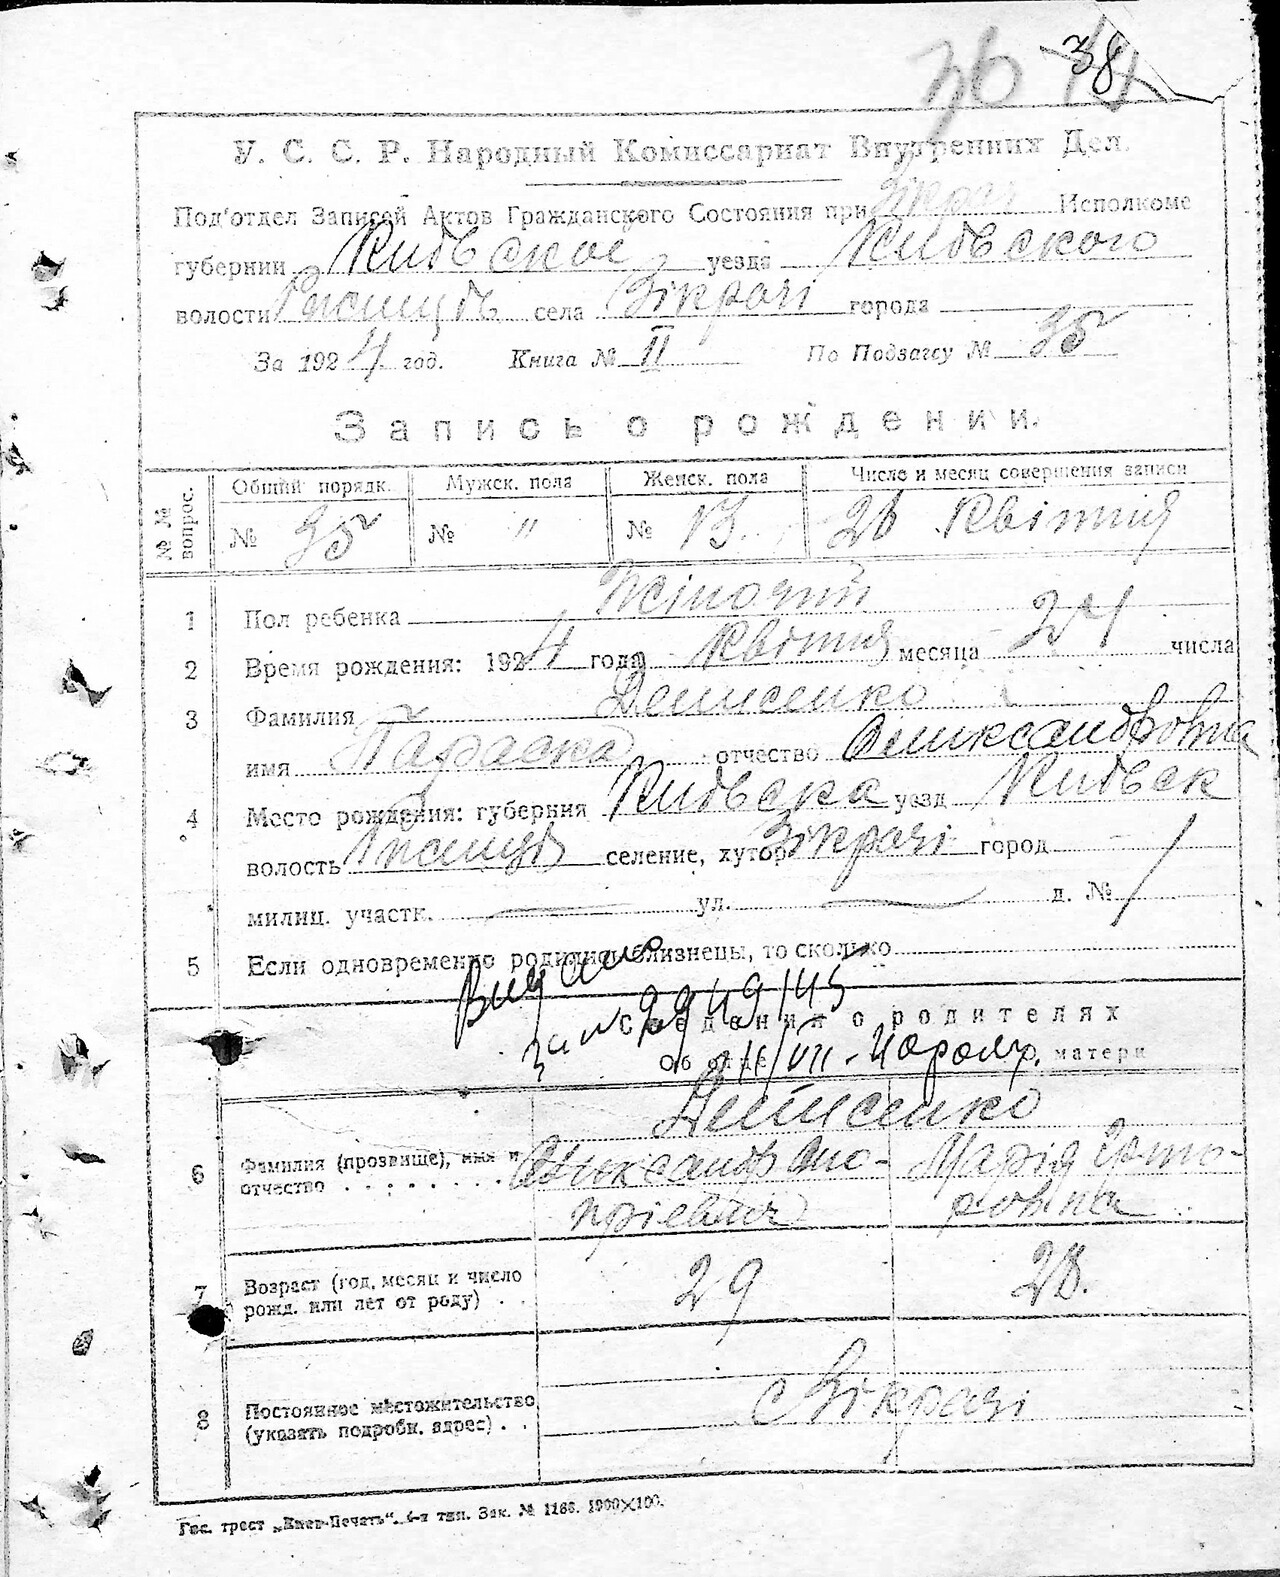 38
36
У. С. С. Р. Народный Комиссариат Внутренних Дел.
Под'отдел Записей Актов Гражданского Состояния при Зікрач Исполкоме
губернии Киівскоі уезда Киівского
волости села Зікрачі города
За 1924 год. Книга № II По Подзагсу № 35
Запись о рождении.
№№ вопрос. Общий порядк. Мужск. пола Женск. пола Число и месяц совершения записи
№ 35 № " № 13. 26 Квітня
1 Пол ребенка Жіночий
2 Время рождения: 1924 года Квітня месяца 24 числа
3 Фамилия Денисенко
имя Параска отчество Олександровна
4 Место рождения: губерния Киівска уезд Киівск
волость селение, хутор Зікрачі город
милиц. участк. ул. д. №
5 Если одновременно родились близнецы, то сколько
Видано
за № 99/49/45
Сведения о родителях
Об отце 2/VII - 49 О матери
Денисенко
6 Фамилия (прозвище), имя и Олександр Оно- Марія
отчество . . . . . . . . прієвич ровна
7 Возраст (год, месяц и число 29 28.
рожд. или лет от роду) . .
8 Постоянное местожительство с Зікрачі
(указать подробн. адрес) . .
Гос. трест „Киев-Печать". 4-я тип. Зак. № 1166. 1000×100.